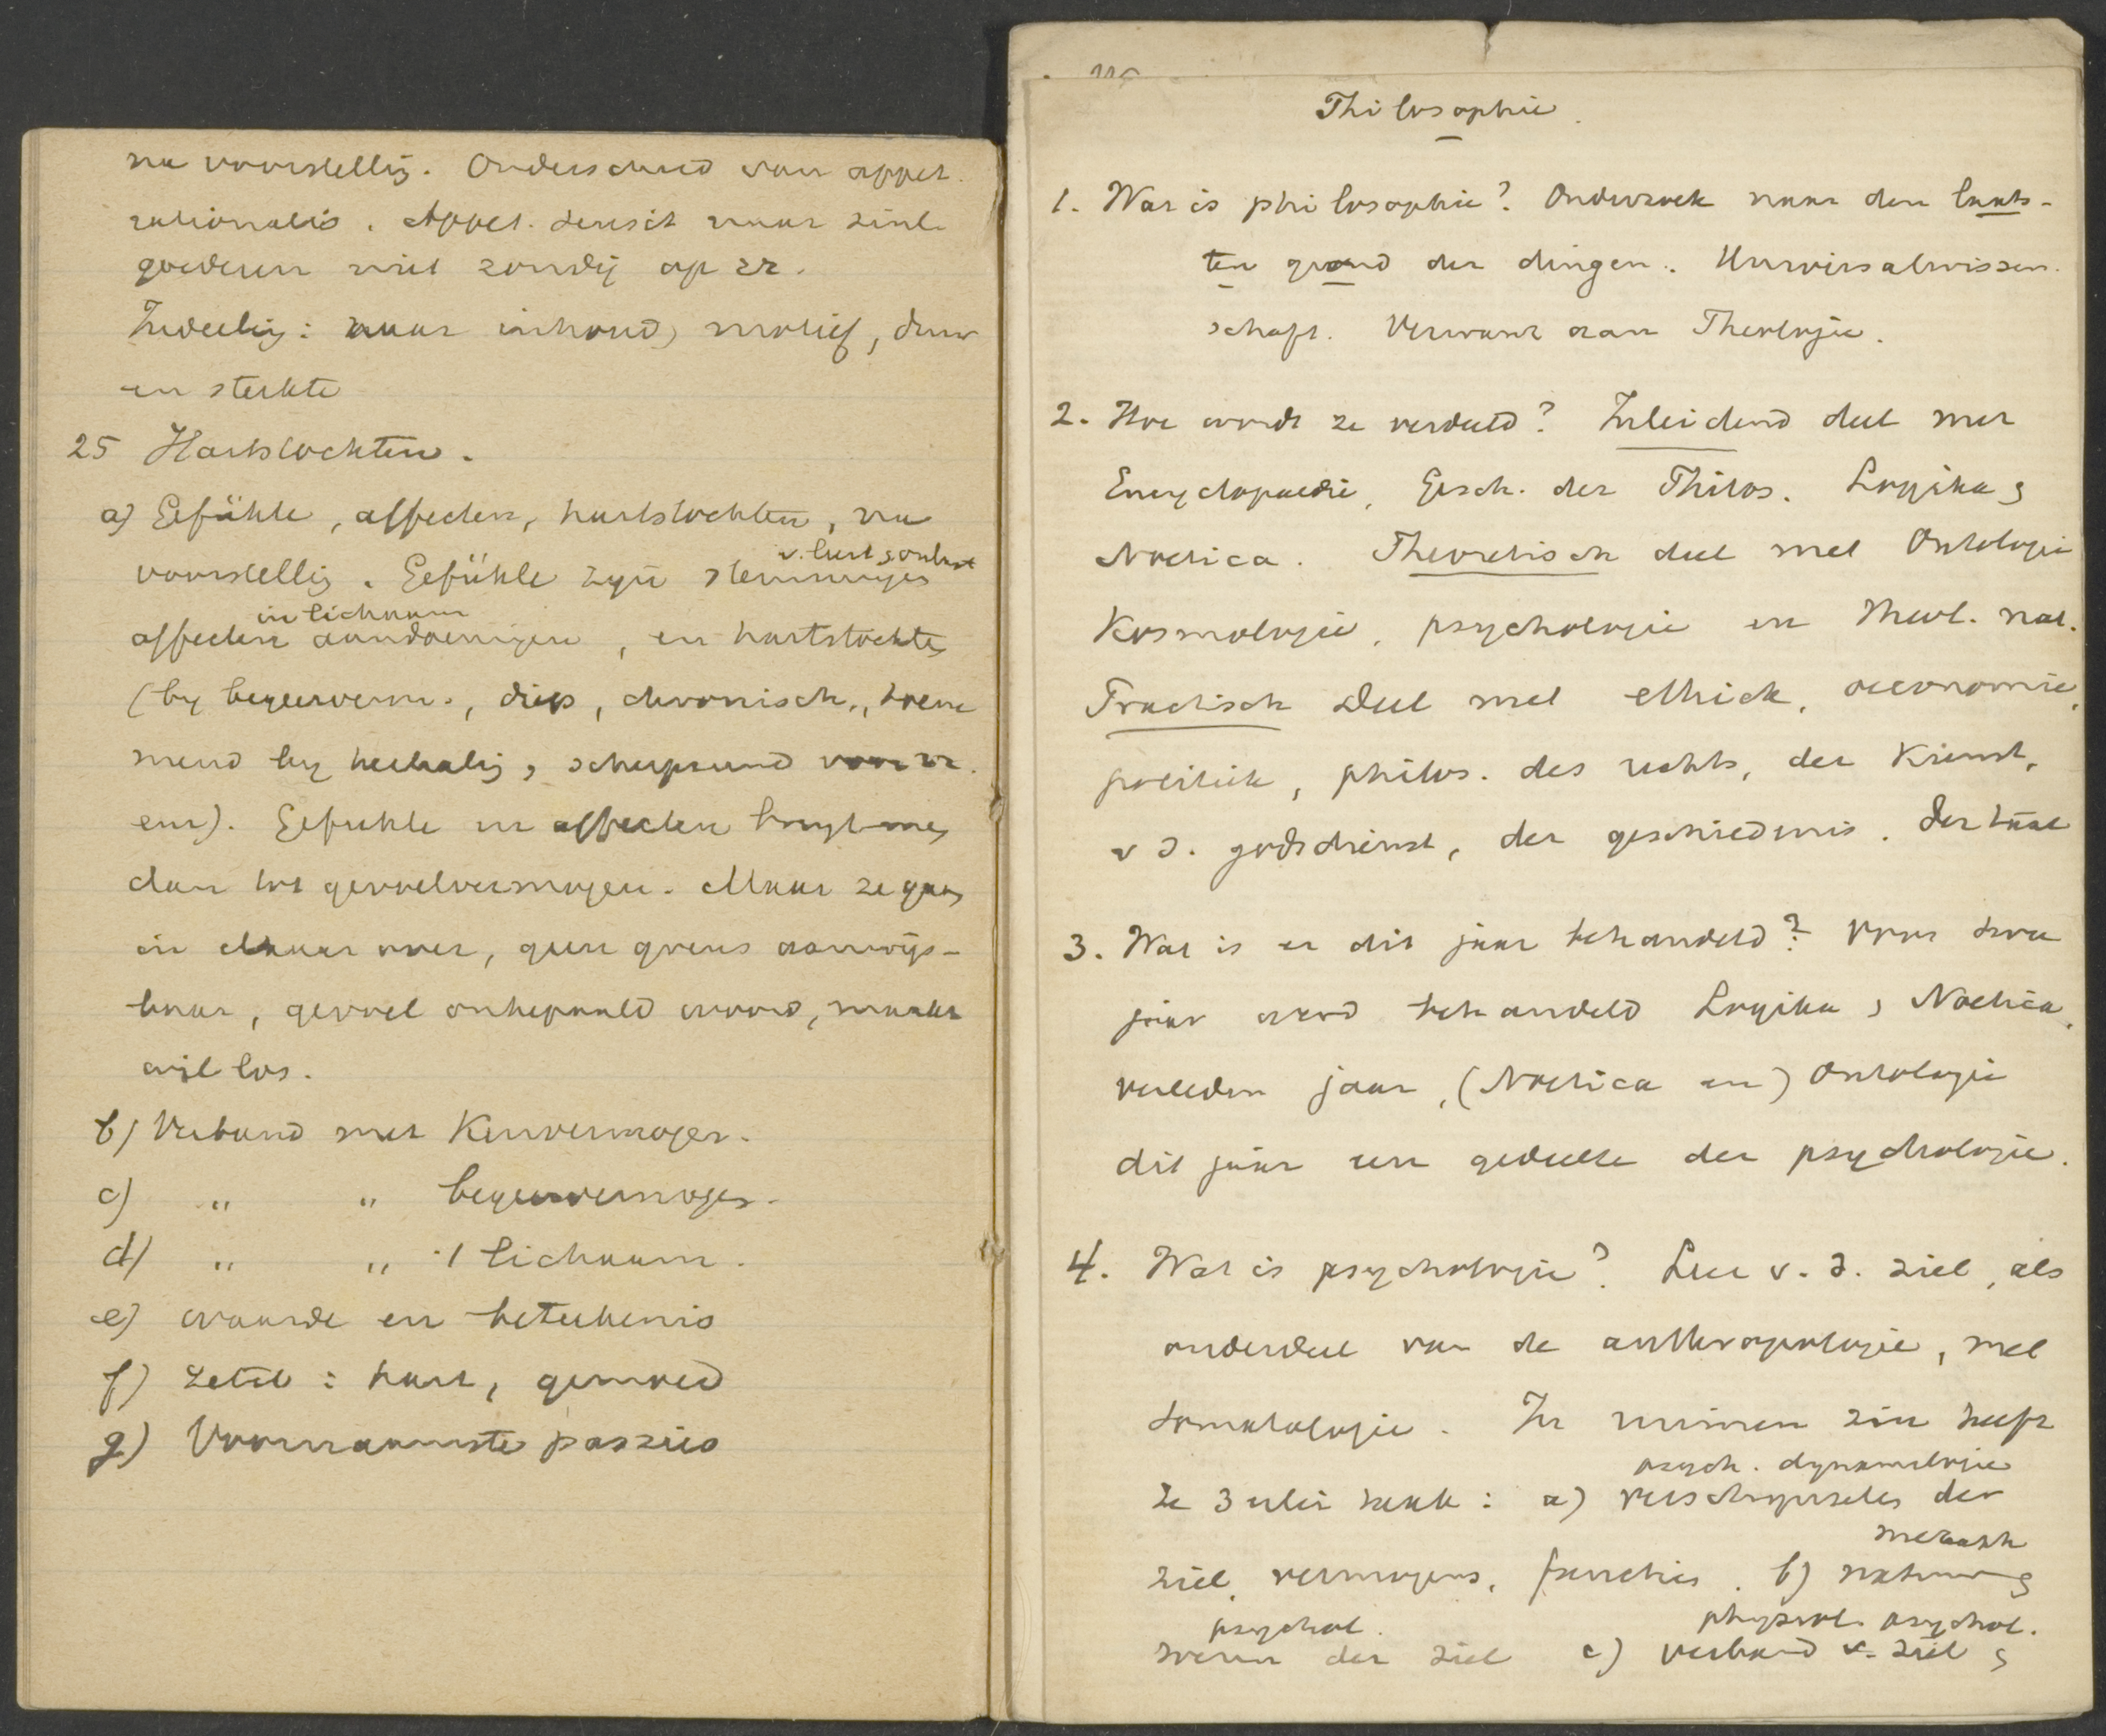 na voorstellig. Onderscheid van appet.
rationalis. Appet. sensit naar zinl.
goederen niet zondig op zz.
Indeelig: naar inhoud, motief, duur
en sterkte
25 Hartstochten.
a) Gefühle, affecten, hartstochten, na
voorstellig. Gefühle zijn stemmingen
v. lust & onlust
affecten aandoeningen, en hartstochten
in lichaam
(by begeerverm., diep, chronisch, toene
mend by herhalig, scherpend
een). Gefuhle en affecten brengt men
dan tot gevoelvermogen. Maar ze gaan
in elkaar over, geen grens aanwijs-
baar, gevoel onbepaald woord, maakt
wil los.
b) Verband met Kenvermogen.
c) " " begeervermogen.
d) " " 't lichaam.
e) waarde en beteekenis
f) zetel: hart, gemoed
g) Voornaamste passies
Philosophie.
1. Wat is philosophie? Onderzoek naar den laats-
ten grond der dingen. Universalwissen-
schaft. Verwant aan Theologie.
2. Hoe wordt ze verdeeld? Inleidend deel met
Encyclopaedie, Gesch. der Philos. Logika &
Noetica. Theoretisch deel met Ontologie
Kosmologie, psychologie en theol. nat.
Practisch Deel met ethiek, oeconomie,
politiek, philos. des rechts, der Kunst,
v d. godsdienst, der geschiedenis. der taal
3. Wat is er dit jaar behandeld? Voor twee
jaar werd behandeld Logika & Noetica,
verleden jaar, (Noetica en) Ontologie
dit jaar een gedeelte der psychologie.
4. Wat is psychologie? Leer v. d. ziel, als
onderdeel van de anthropologie, met
somatologie. In ruimen zin heeft
psych. dynamologie
ze 3erlei taak: a) verschijnselen der
metaph
ziel, vermogens, functies. b) natuur &
psychol. physiol. psychol.
wezen der ziel c) verband v. ziel &